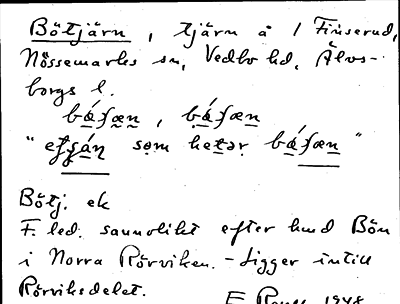 Bötjärn, tjärn å 1 Finserud,
Nössemarks sn, Vedbo hd, Älvs-
borgs l.
bá̱ʃæn, bá̱ʃæn
som hetər bá̱ʃæn"
Bötj. ek
F. led. sannolikt efter hmd Bön
i Norra Rörviken. - Ligger intill
Rörviksdelet.
E 1948